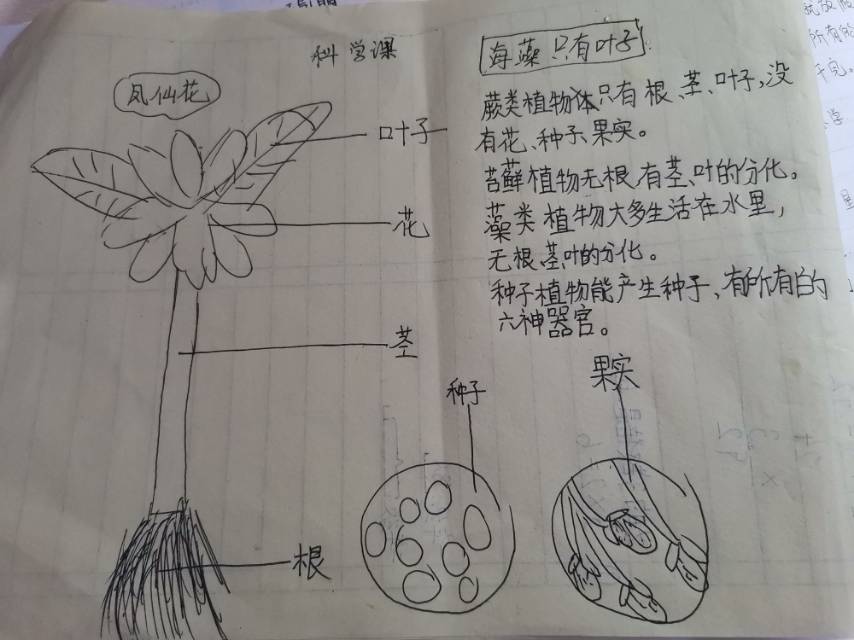 科学课
凤仙花
叶子
花
茎
根
海藻只有叶子.
蕨类植物体只有根、茎、叶子,没
有花、种子、果实。
苔藓植物无根,有茎、叶的分化。
藻类植物大多生活在水里,
无根、茎、叶的分化。
种子植物能产生种子、有所有的
六神器官。
种子
果实